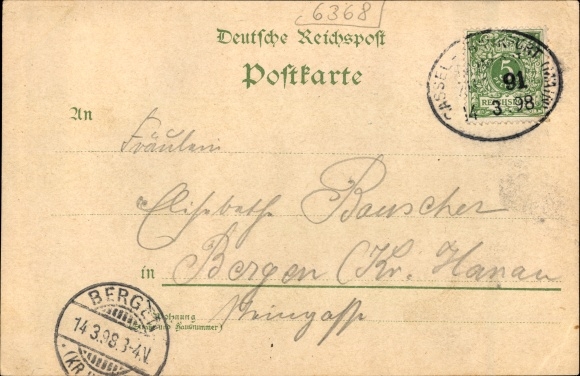 6368
Deutsche Reichspost
Postkarte
CASSEL - FRANKFURT (MAIN)
5
91
14 3 98
An
Fräulein
Elisabethe Bauscher
in Bergen (Kr. Hanau
Wohnung
(Straße und Hausnummer)
BERGEN
14.3.98.3-4.V.